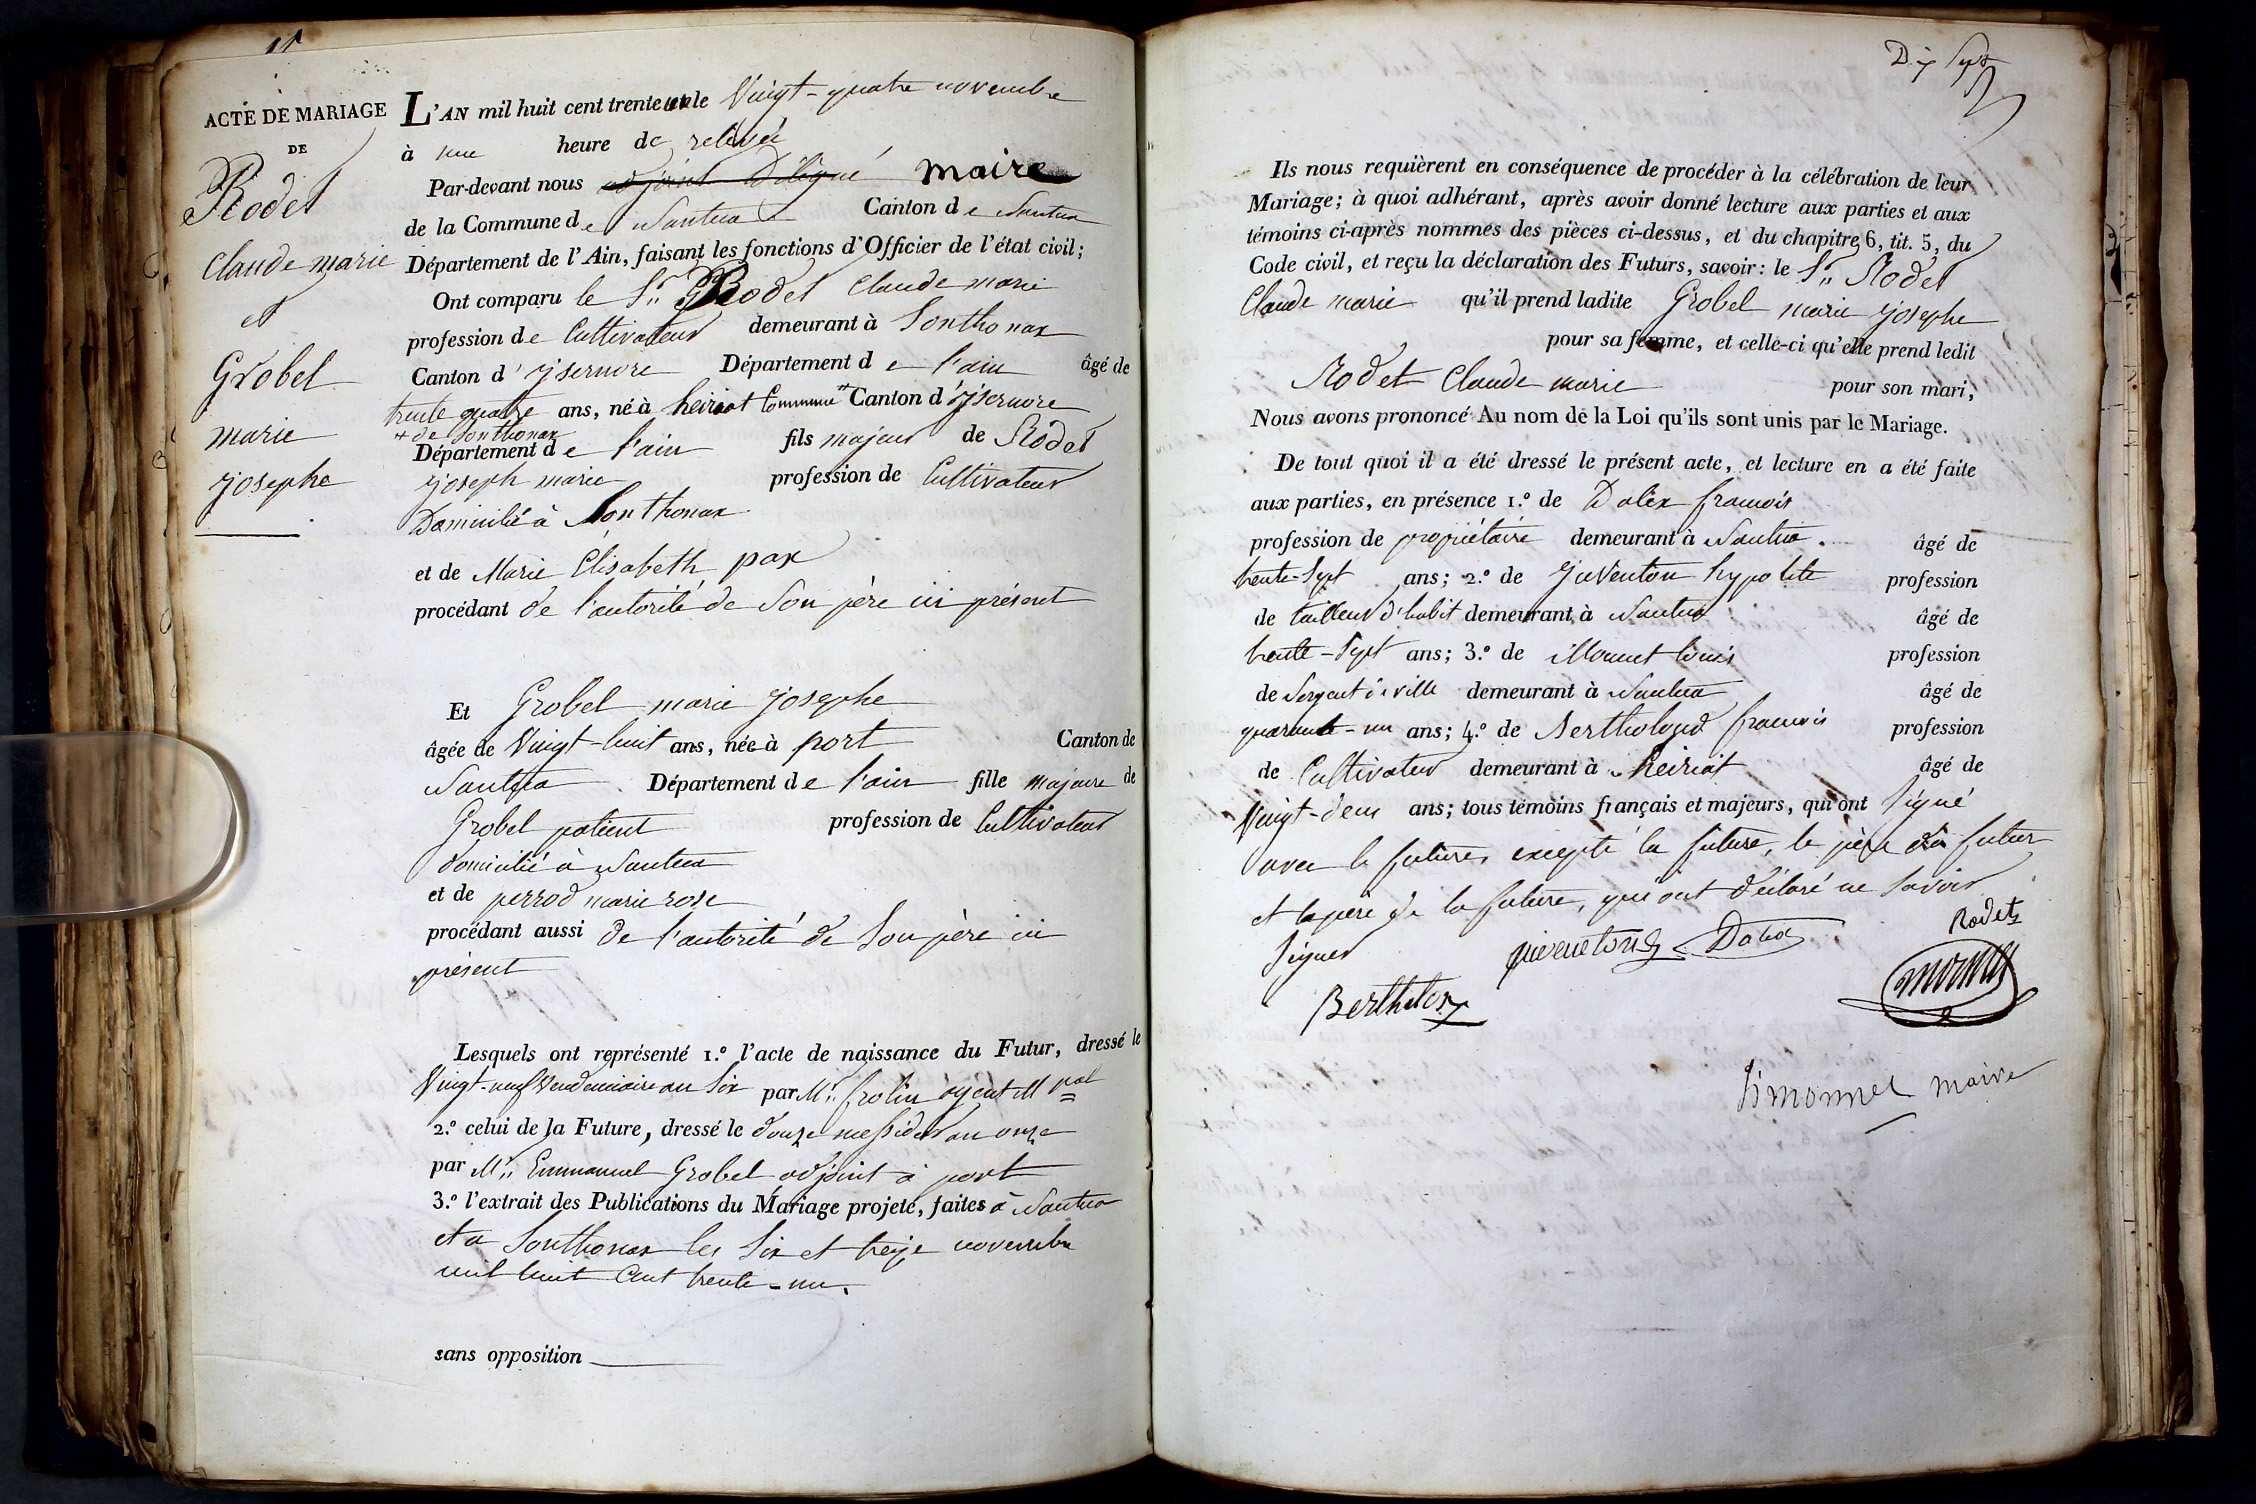 11
ACTE DE MARIAGE
DE
Rodet
Claude marie
et
Grobel
marie
josephe
L'AN mil huit cent trente un le Vingt-quatre novembre
à une heure de relevée
Par-devant nous adjoint délégué maire
de la Commune de Nantua Canton de Nantua
Département de l'Ain, faisant les fonctions d'Officier de l'état civil;
Ont comparu le Sr. Rodet Claude marie
profession de Cultivateur demeurant à Sonthonax
Canton d'ysernore Département de l'ain âgé de
trente quatre ans, né à heiriat Commune + Canton d'ysernore
+ de Sonthonax
Département de l'ain fils majeur de Rodet
joseph marie profession de Cultivateur
Domicilié à Sonthonax
et de Marie Elisabeth pax
procédant de l'autorité de Son père ici présent
Et Grobel marie josephe
âgée de Vingt-huit ans, née à port Canton de
Nantua Département de l'ain fille majeure de
Grobel patient profession de Cultivateur
domicilié à Nantua
et de perrod marie rose
procédant aussi de l'autorité de Son père ici
présent
Lesquels ont représenté 1.º l'acte de naissance du Futur, dressé le
Vingt-neuf Vendemiaire an Six par Mr. frolin agent Mpal
2.º celui de la Future, dressé le douze messidor an onze
par Mr. Emmanuel Grobel adjoint à port
3.º l'extrait des Publications du Mariage projeté, faites à Nantua
et a Sonthonax les Six et treize novembre
mil huit Cent trente-un.
sans opposition
Dix Sept
Ils nous requièrent en conséquence de procéder à la célébration de leur
Mariage; à quoi adhérant, après avoir donné lecture aux parties et aux
témoins ci-après nommés des pièces ci-dessus, et du chapitre 6, tit. 5, du
Code civil, et reçu la déclaration des Futurs, savoir: le Sr. Rodet
Claude marie qu'il prend ladite Grobel marie josephe
pour sa femme, et celle-ci qu'elle prend ledit
Rodet Claude marie pour son mari,
Nous avons prononcé Au nom de la Loi qu'ils sont unis par le Mariage.
De tout quoi il a été dressé le présent acte, et lecture en a été faite
aux parties, en présence 1.º de Dalex francois
profession de propriétaire demeurant à Nantua. âgé de
trente-Sept ans; 2.º de Juventon hypolite profession
de tailleur d'habit demeurant à Nantua âgé de
trente-Sept ans; 3.º de Mornet Louis profession
de Sergent de ville demeurant à Nantua âgé de
quarante-un ans; 4.º de Bertholoud francois profession
de Cultivateur demeurant à heiriat âgé de
Vingt-deux ans; tous témoins français et majeurs, qui ont Signé
avec le future, excepté la future, le père du futur
et le père de la future, qui ont déclaré ne Savoir
Signer
Rodet
Dalex
mornet
Simonnet maire